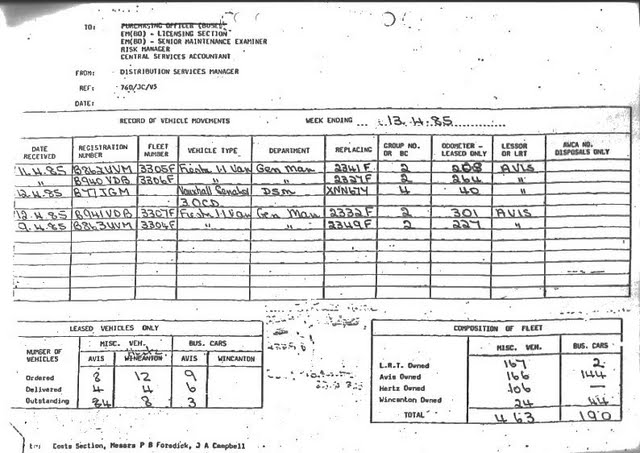 TO: PURCHASING OFFICER (BUSES)
EM(BO) - LICENSING SECTION
EM(BO) - SENIOR MAINTENANCE EXAMINER
RISK MANAGER
CENTRAL SERVICES ACCOUNTANT
FROM: DISTRIBUTION SERVICES MANAGER
REF: 760/JC/V5
DATE:
RECORD OF VEHICLE MOVEMENTS WEEK ENDING 13.4.85
DATE RECEIVED REGISTRATION NUMBER FLEET NUMBER VEHICLE TYPE DEPARTMENT REPLACING GROUP NO. OR BC ODOMETER - LEASED ONLY LESSOR OR LRT AWCA NO. DISPOSALS ONLY
11.4.85 B862UVM 3305F Fiesta 1.1 Van Gen Man 2341F 2 208 AVIS
" B940 VDB 3306F " " 2337F 2 264 "
12.4.85 B717JGM Vauxhall Senator DSM XNN67Y 4 40 "
3.0CD
12.4.85 B941VDB 3307F Fiesta 1.1 Van Gen Man 2332F 2 301 AVIS
9.4.85 B863UVM 3304F " " 2349F 2 227 "
LEASED VEHICLES ONLY
NUMBER OF VEHICLES MISC. VEH. BUS. CARS
AVIS WINCANTON AVIS WINCANTON
Ordered 8 12 9
Delivered 4 4 6
Outstanding 84 8 3
COMPOSITION OF FLEET
MISC. VEH. BUS. CARS
L.R.T. Owned 167 2
Avis Owned 166 144
Hertz Owned 106 —
Wincanton Owned 24 44
TOTAL 463 190
Costs Section, Messrs P B Forsdick, J A Campbell